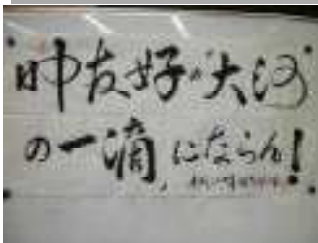 日中友好"大河"
の一滴にならん!